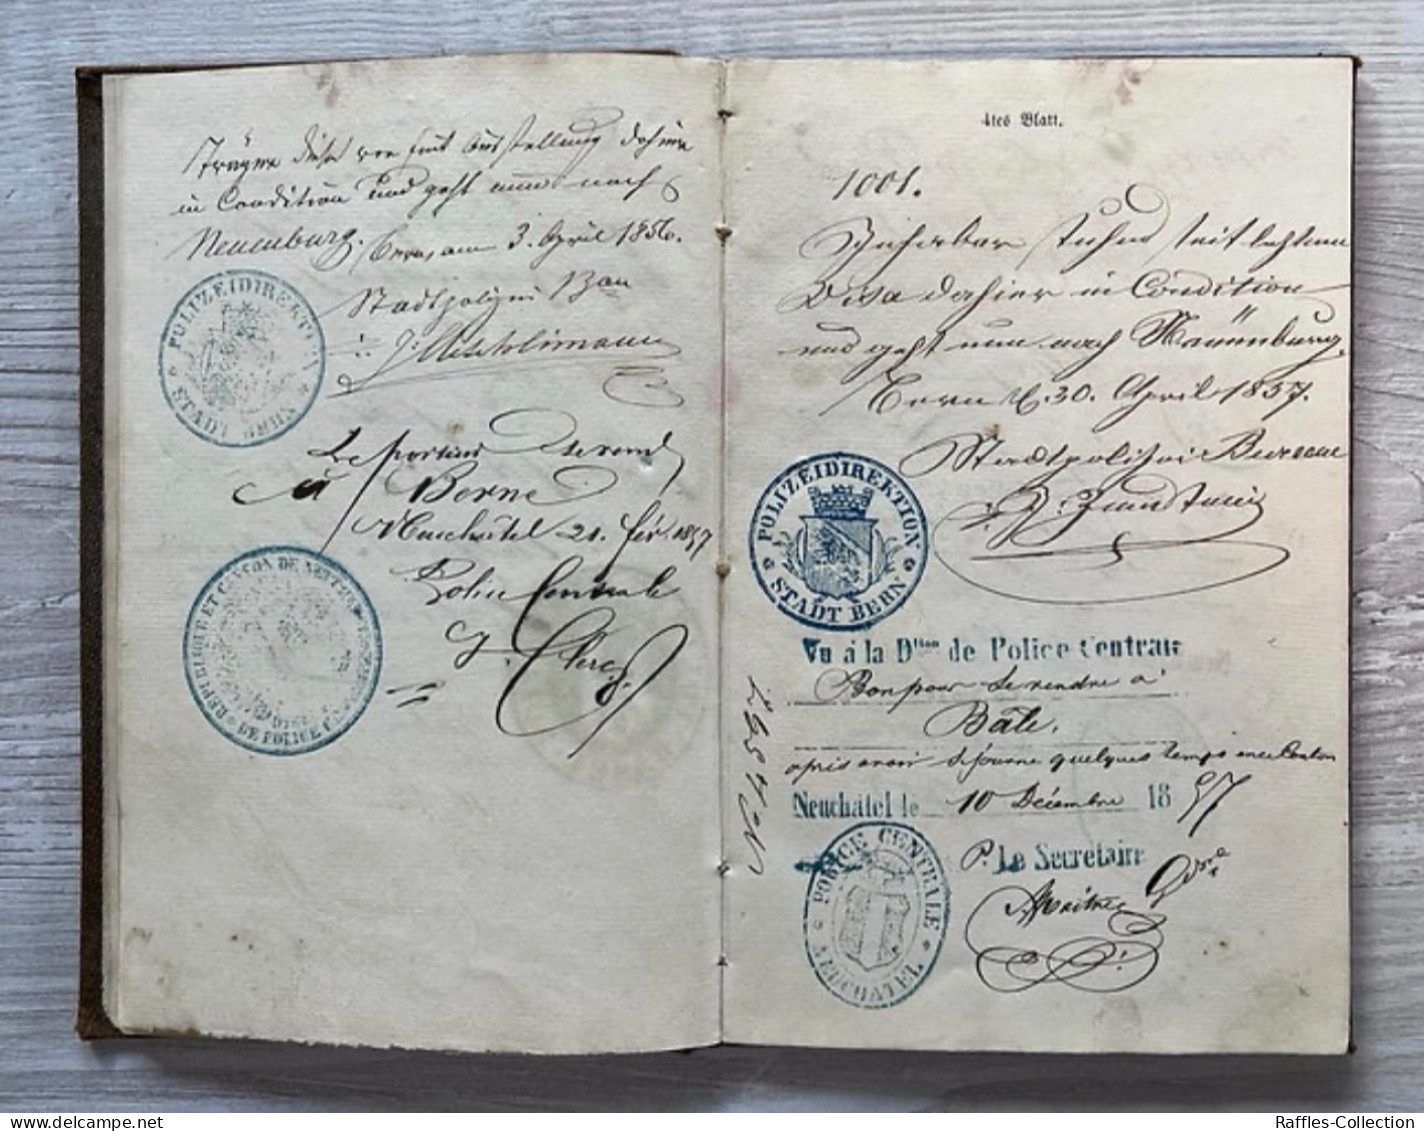 Träger dieses war seit Ausstellung dahier
in Condition und geht nun nach
Neuenburg. Bern, am 3. April 1856.
Stadtpolizei Bern
J. Aeschlimann
POLIZEIDIREKTION
STADT BERN
Le porteur se rend
à Berne
Neuchâtel 21. fév. 1857
Police Centrale
Clerc
REPUBLIQUE ET CANTON DE NEUCHATEL
DE POLICE
4tes Blatt.
1001.
Inhaber stuhnd seit letztem
Visa dahier in Condition
und geht nun nach Neuenburg.
Bern d. 30. April 1857.
Stadtpolizei Bureau
POLIZEIDIREKTION
STADT BERN
Vu à la Dtion de Police Centrale
Bon pour se rendre à
Bâle,
après avoir séjourné quelques temps en ce Canton
Neuchâtel le 10 Décembre 1857
P. Le Secrétaire
POLICE CENTRALE
NEUCHATEL
Raffles-Collection